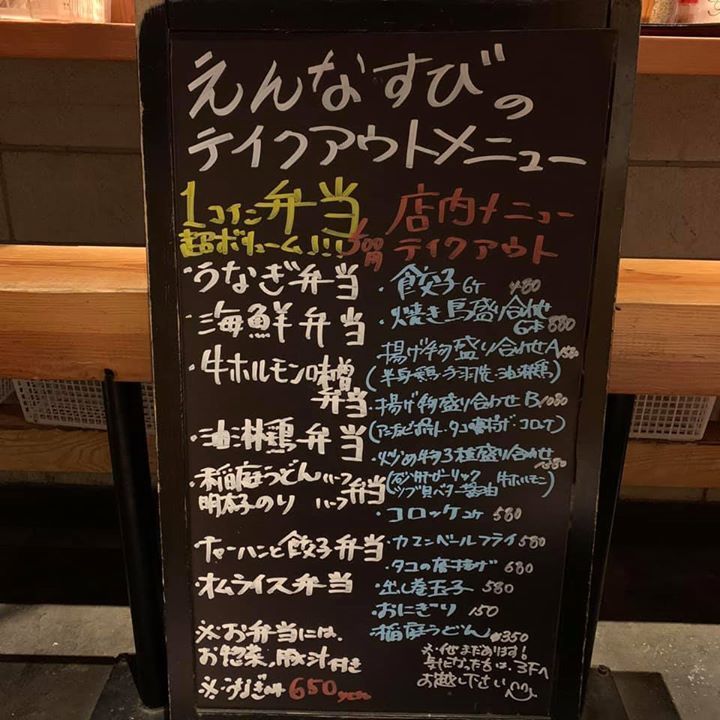 えんなすびの
テイクアウトメニュー
1コイン弁当
超ボリューム!!!
500円
・うなぎ弁当
・海鮮弁当
・牛ホルモン味噌
弁当
・油淋鶏弁当
・稲庭うどんハーフ
明太子のりハーフ弁当
・チャーハンと餃子弁当
・オムライス弁当
※お弁当には、
お惣菜、豚汁付き
※うなぎ弁 650
店内メニュー
テイクアウト
・餃子6ケ ¥480
・焼き鳥盛り合わせ
6本 880
・揚げ物盛り合わせA
(半身鶏・手羽先・油淋鶏)
・揚げ物盛り合わせB 1080
・炒め物3種盛り合わせ
牛ホルモン
ツブ貝バター醤油)
・コロッケ2ケ 580
・カマンベールフライ 580
・タコの唐揚げ 680
・出し巻玉子 580
・おにぎり 150
・稲庭うどん ¥350
※他まだあります!
気になった方は、3Fへ
お越し下さい